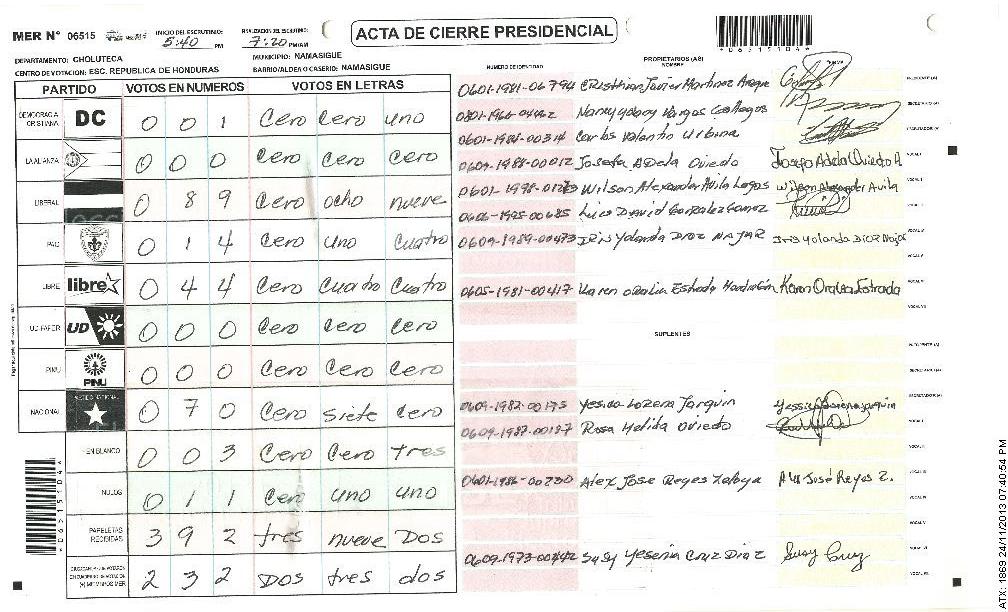 MER N° 06515 INICIO DEL ESCRUTINIO: 5:40 PM FINALIZACION DEL ESCRUTINIO: 7:20 PM/AM
ACTA DE CIERRE PRESIDENCIAL
*06515104*
DEPARTAMENTO: CHOLUTECA MUNICIPIO: NAMASIGUE
CENTRO DE VOTACION: ESC. REPUBLICA DE HONDURAS BARRIO/ALDEA O CASERIO: NAMASIGUE
PARTIDO VOTOS EN NUMEROS VOTOS EN LETRAS
DEMOCRACIA CRISTIANA DC 0 0 1 Cero Cero uno
LA ALIANZA 0 0 0 Cero Cero Cero
LIBERAL 0 8 9 Cero ocho nueve
PAC 0 1 4 Cero uno cuatro
LIBRE libre 0 4 4 Cero Cuatro Cuatro
UD-FAPER UD 0 0 0 Cero Cero Cero
PINU PINU 0 0 0 Cero Cero Cero
NACIONAL 0 7 0 Cero siete Cero
EN BLANCO 0 0 3 Cero Cero tres
NULOS 0 1 1 Cero uno uno
PAPELETAS RECIBIDAS 3 9 2 tres nueve Dos
2 3 2 Dos tres dos
*06515104*
NUMERO DE IDENTIDAD PROPIETARIOS (AS) NOMBRE FIRMA
0601-1981-06794 Cristhian Javier Martinez PRESIDENTE (A)
Vargas SECRETARIO (A)
0601-1988-00314 Carlos Valentin Urbina
0609-1988-00012 Josefa Adela Oviedo Josefa Adela Oviedo A. VOCAL I
Wilson Alexander Avila Lagos Wilson Alexander Avila VOCAL II
0606-1995-00685 David Gonzalez Gomez
0609-1989-00473 Iris Yolanda Diaz Najar Iris Yolanda Diaz Najar
0605-1981-00417 Karen Oralia Estrada Karen Oralia Estrada
SUPLENTES
PRESIDENTE (A)
SECRETARIO (A)
0609-1982-00175 Yesica Lorena Jarquin Yessica Lorena Jarquin
0609-1987-00187 Rosa Melida Oviedo
0601-1986-00730 Alex Jose Reyes Zelaya Alex José Reyes Z.
Susy Yesenia Cruz Diaz Susy Cruz
ATX: 1869 24/11/2013 07:40:54 PM